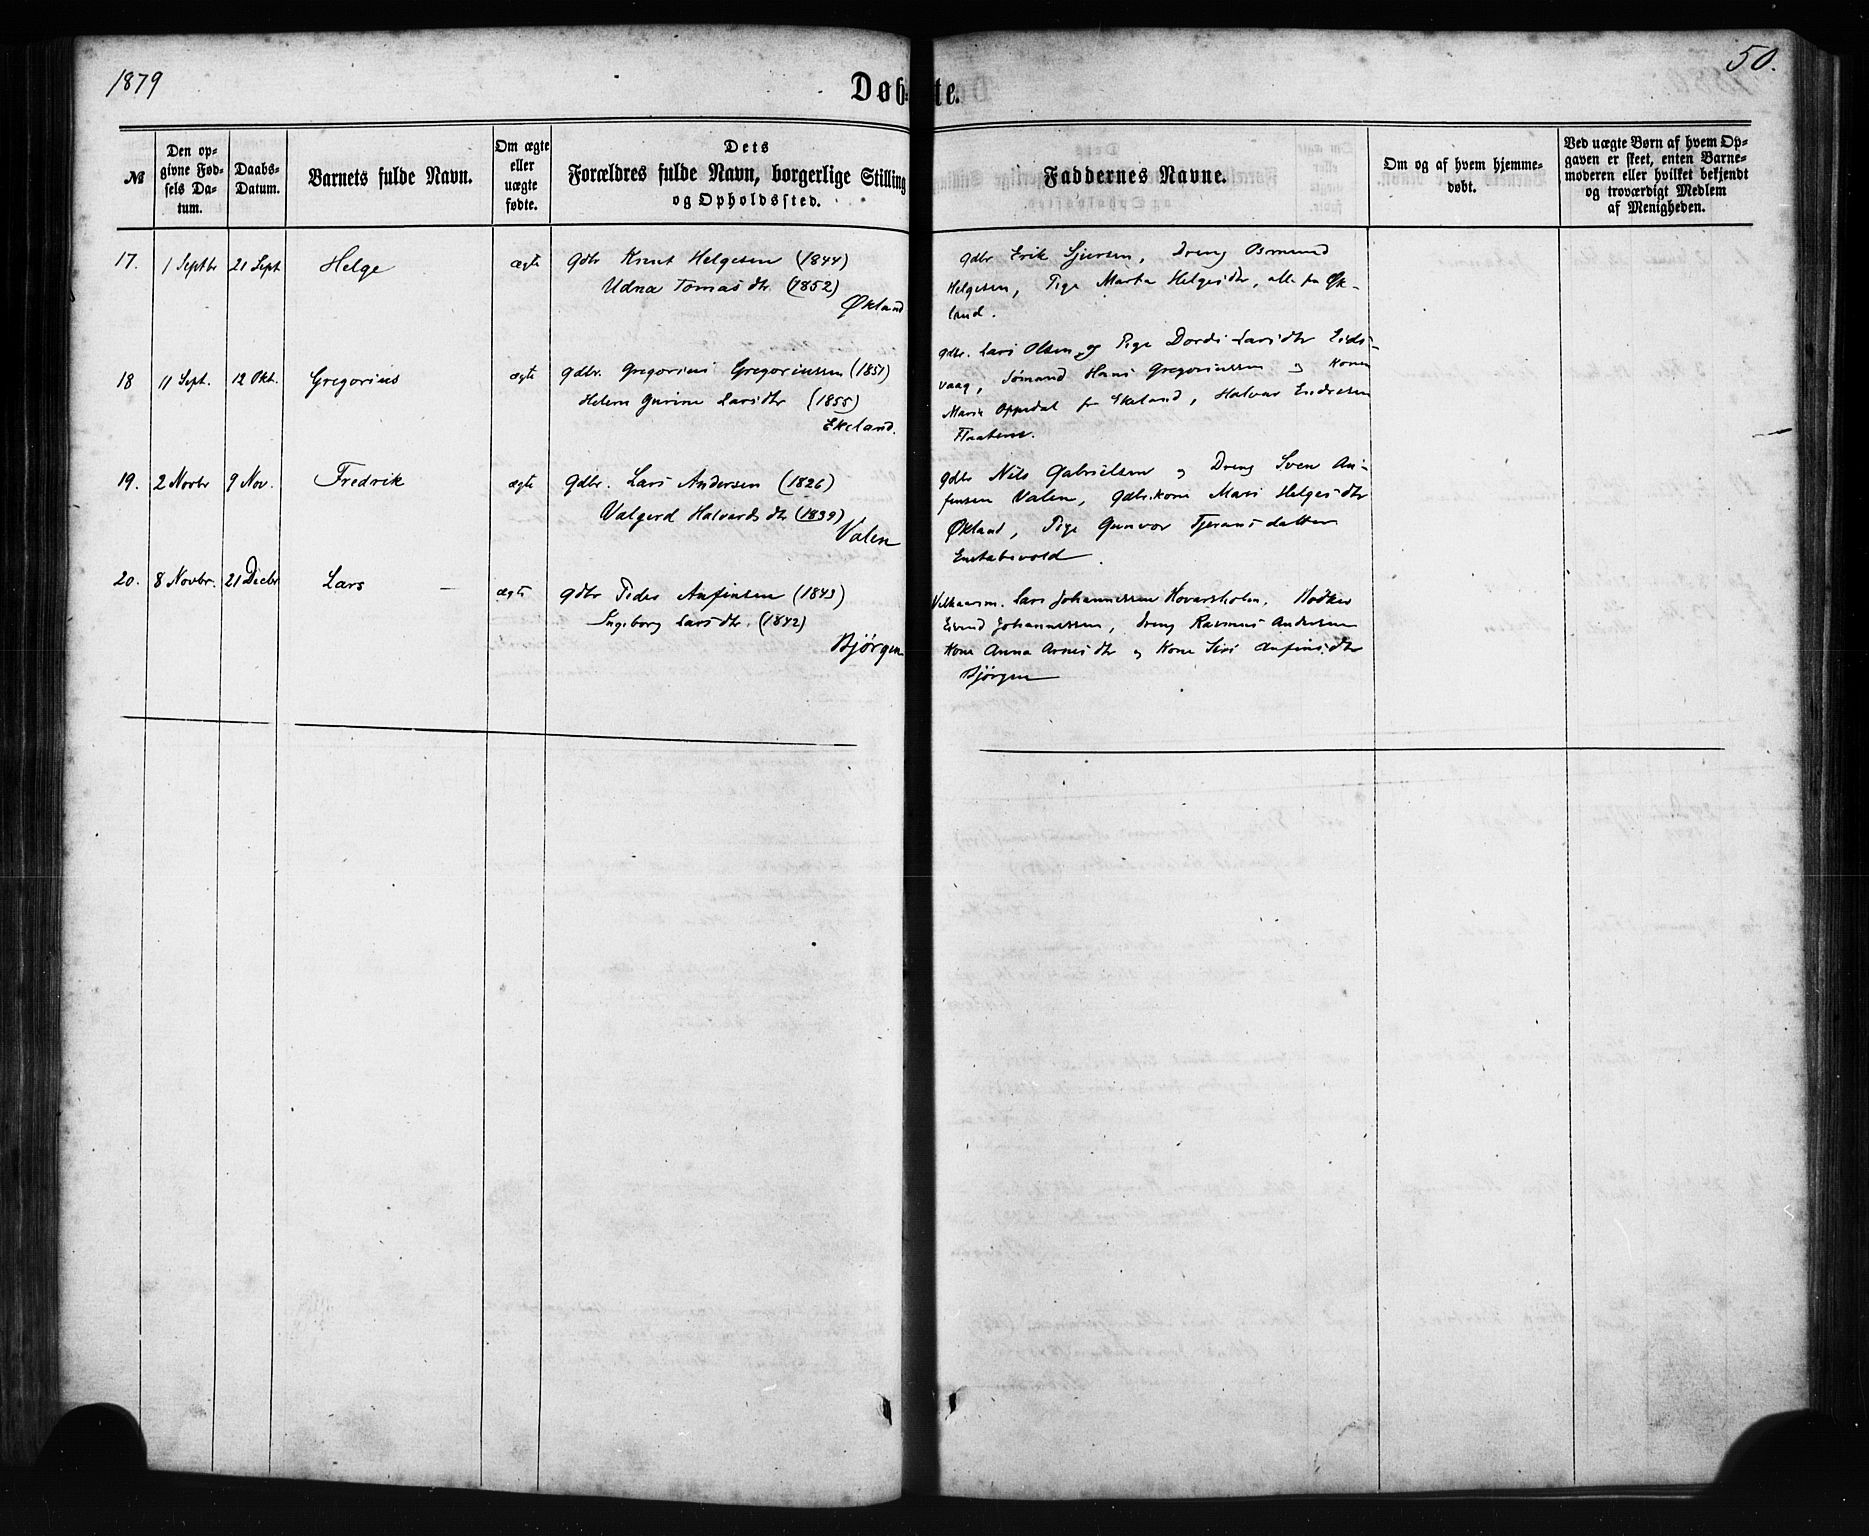 1879
Døbte.
50.
№
Den op-
givne Fød-
sels Da-
tum.
Daabs-
Datum.
Barnets fulde Navn.
Om ægte
eller
uægte
fødte.
Dets
Forældres fulde Navn, borgerlige Stilling
og Opholdssted.
Faddernes Navne.
Om og af hvem hjemme-
døbt.
Ved uægte Børn af hvem Op-
gaven er skeet, enten Barne-
moderen eller hvilket bekjendt
og troværdigt Medlem
af Menigheden.
17.
1 Septbr
21 Sept
Helge
ægte
Gdbr Knut Helgesen (1844)
Udna Tomasdtr. (1852)
Økland
Gdbr Erik Sjursen, Dreng Osmund
Helgesen, Pige Marta Helgesdtr, alle fra Øk-
land.
18
11 Sept.
12 Okt.
Gregorius
ægte
Gdbr. Gregorius Gregoriussen (1851)
Helene Gurine Larsdtr (1855)
Ekeland.
Gdbr. Lars Olsen og Pige Dordi Larsdtr Eids-
vaag, Sømand Hans Gregoriussen og Kone
Marie Oppedal fr Ekeland, Halvor Endresen
19.
2 Novbr
9 Nov.
Fredrik
ægte
Gdbr. Lars Andersen (1826)
Valgerd Halvardsdtr (1839)
Valen
Gdbr Nils Gabrielsen og Dreng Sven An-
finsen Valen, Gdbr.kone Mari Helgesdtr
Økland, Pige Gunvor Tjeransdatter
Enstabøvold.
20.
8 Novbr.
21 Decbr
Lars
ægte
Gdbr Peder Anfinsen (1843)
Ingeborg Larsdtr. (1842)
Bjørgen
Lars Johannessen Hovarsholm,
Eivind Johannessen, Dreng Rasmus Andersen
Kone Anna Arnesdtr og Kone Siri Anfinsdtr
Bjørgen